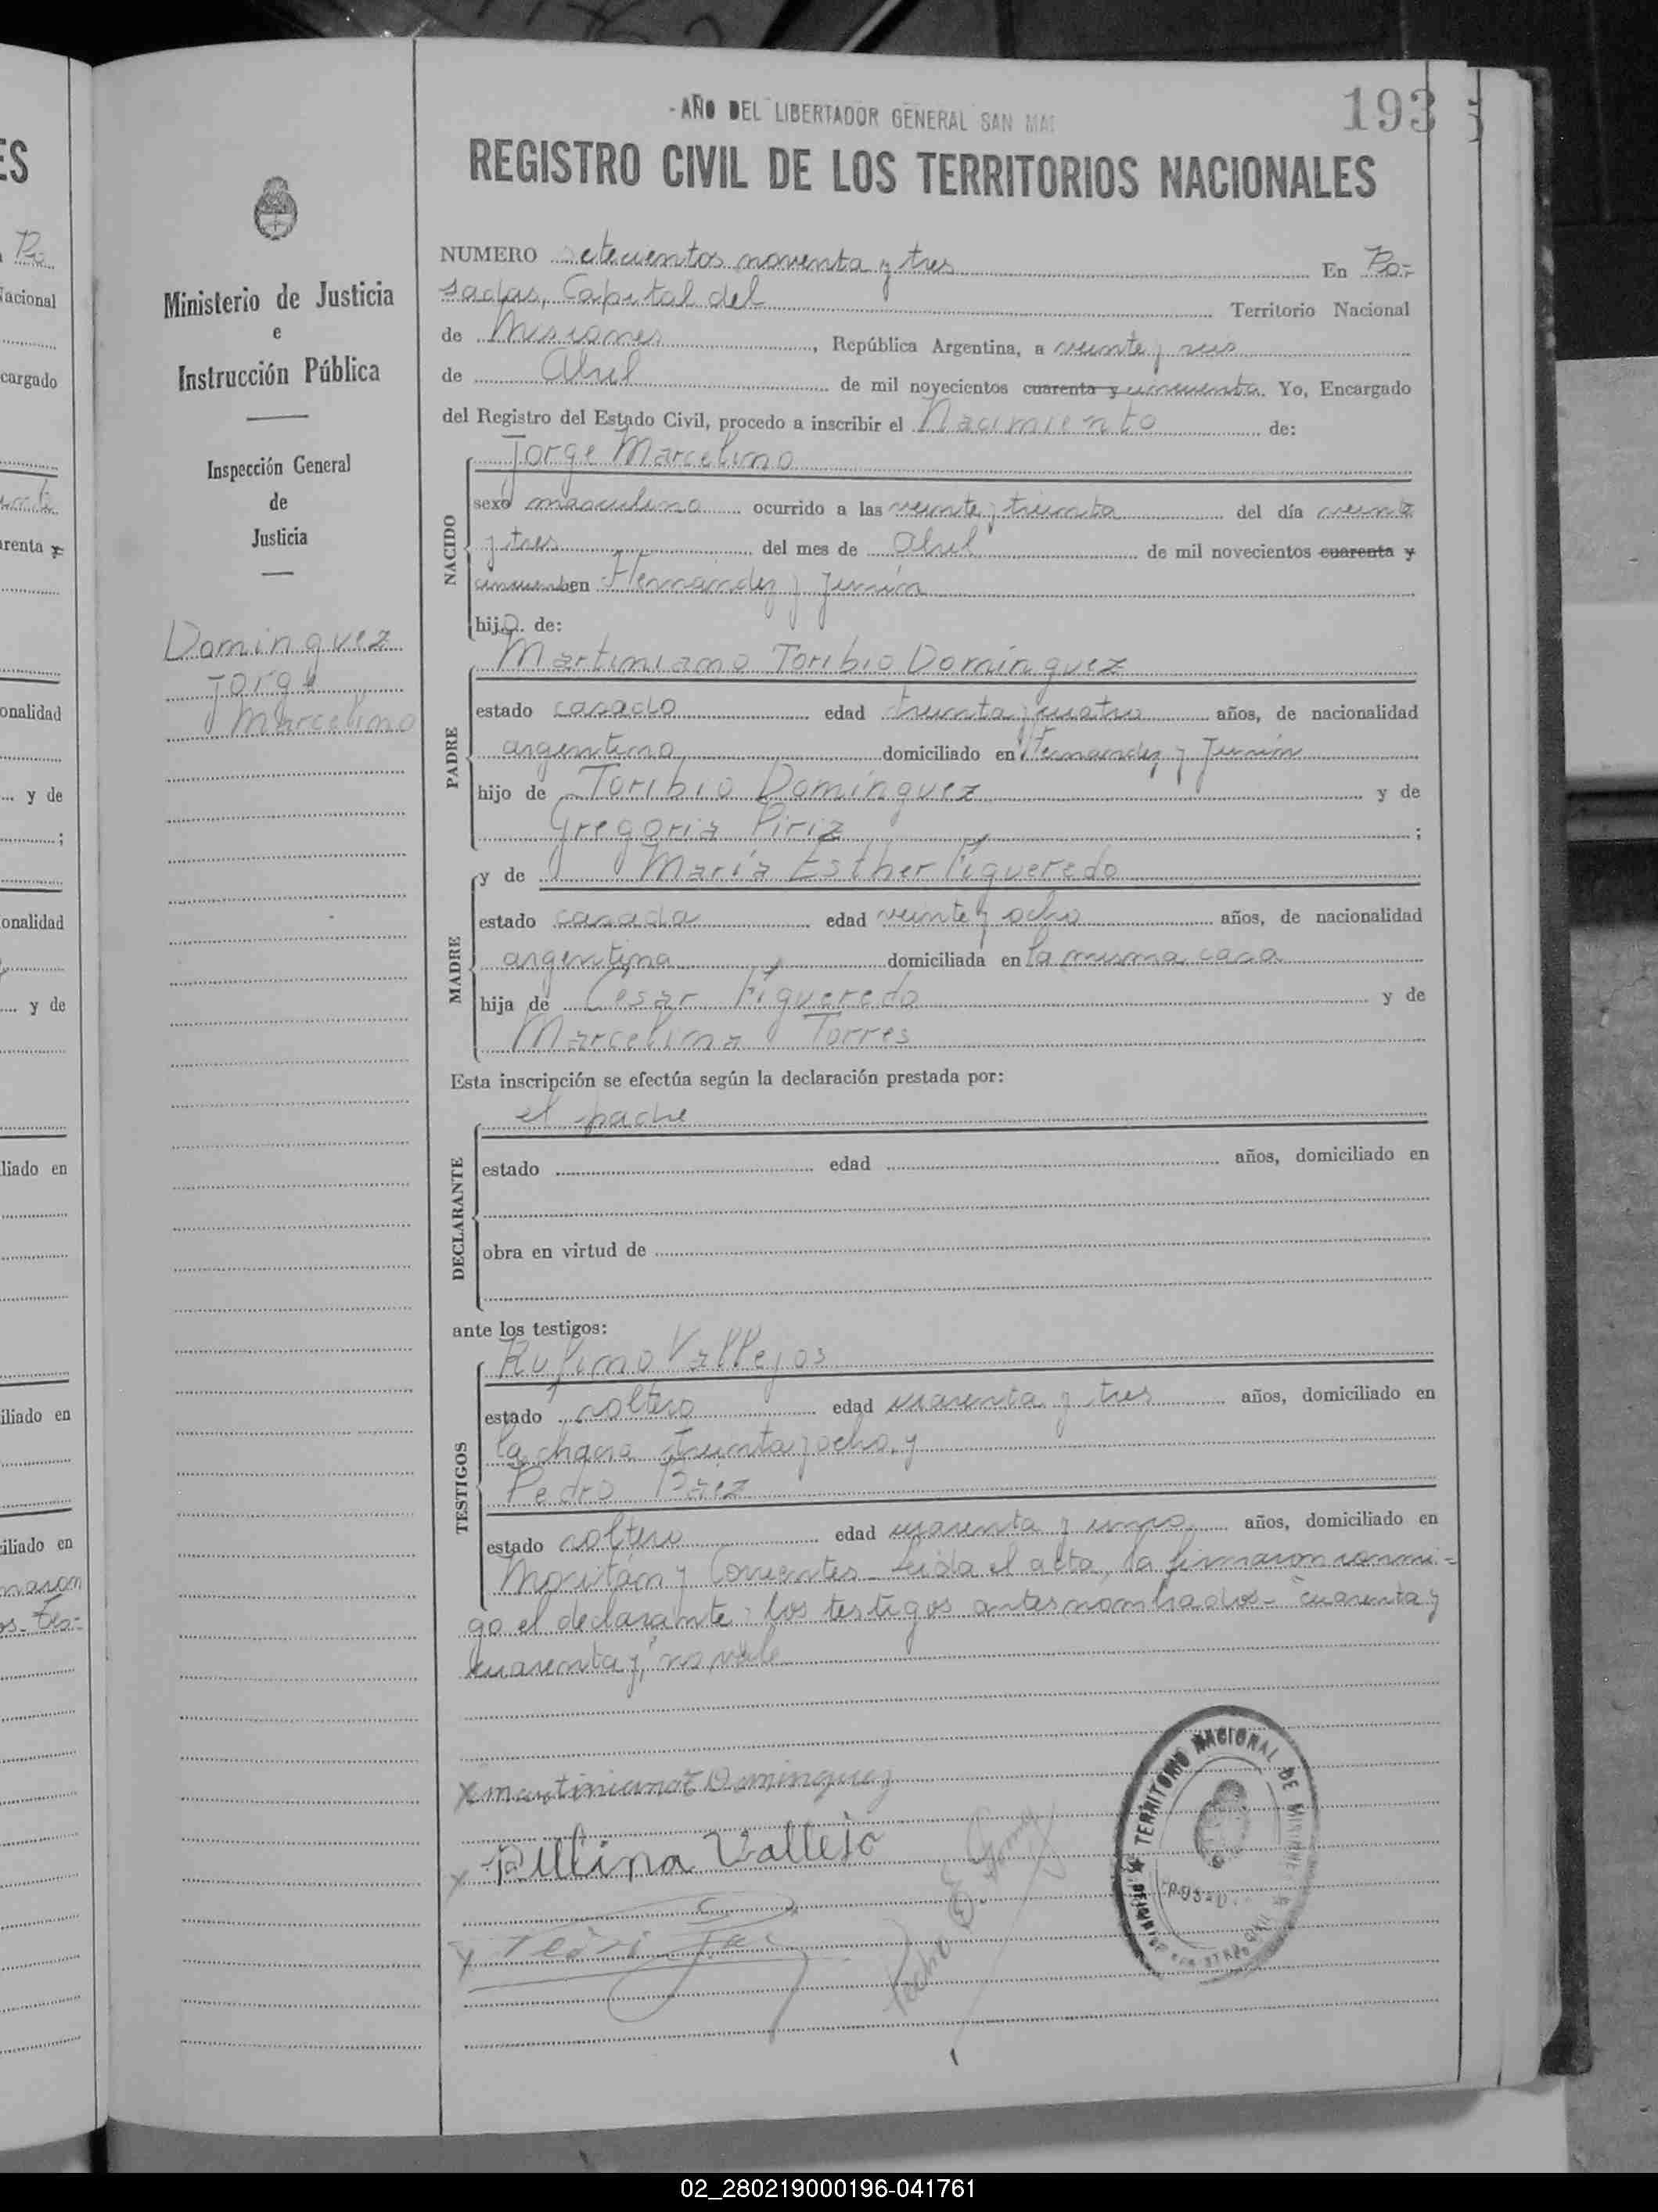 - AÑO DEL LIBERTADOR GENERAL SAN MAR
193
REGISTRO CIVIL DE LOS TERRITORIOS NACIONALES
Ministerio de Justicia
e
Instrucción Pública
Inspección General
de
Justicia
Dominguez
Jorge
Marcelino
NUMERO setecientos noventa y tres En Po-
sadas, Capital del Territorio Nacional
de Misiones, República Argentina, a veinte y seis
de Abril de mil novecientos cuarenta y cincuenta. Yo, Encargado
del Registro del Estado Civil, procedo a inscribir el Nacimiento de:
NACIDO
Jorge Marcelino
sexo masculino ocurrido a las veinte y treinta del día veinte
y tres del mes de Abril de mil novecientos cuarenta y
cincuenta en Hernández y Junín
hijo de:
PADRE
Martiniano Toribio Domínguez
estado casado edad treinta y cuatro años, de nacionalidad
argentino domiciliado en Hernandez y Junín
hijo de Toribio Domínguez y de
Gregoria Piriz ;
MADRE
y de María Esther Figueredo
estado casada edad veinte y ocho años, de nacionalidad
argentina domiciliada en la misma casa
hija de Cesar Figueredo y de
Marcelina Torres
Esta inscripción se efectúa según la declaración prestada por:
DECLARANTE
el padre
estado edad años, domiciliado en
obra en virtud de
ante los testigos:
TESTIGOS
Rufino Vallejos
estado soltero edad cuarenta y tres años, domiciliado en
la chacra treinta y ocho, y
Pedro Báez
estado soltero edad cuarenta y cinco años, domiciliado en
y Corrientes - Leída el acta, la firmaron conmi-
go el declarante y los testigos antes nombrados - "cuarenta y
cuarenta y," no vale
x martiniano T Dominguez
x Rufino Vallejo
x
Pedro E. Gomez
TERRITORIO NACIONAL DE MISIONES
POSADAS
ES
Po
Nacional
cargado
arenta y
onalidad
... y de
;
onalidad
... y de
liado en
iliado en
iliado en
maron
02_280219000196-041761